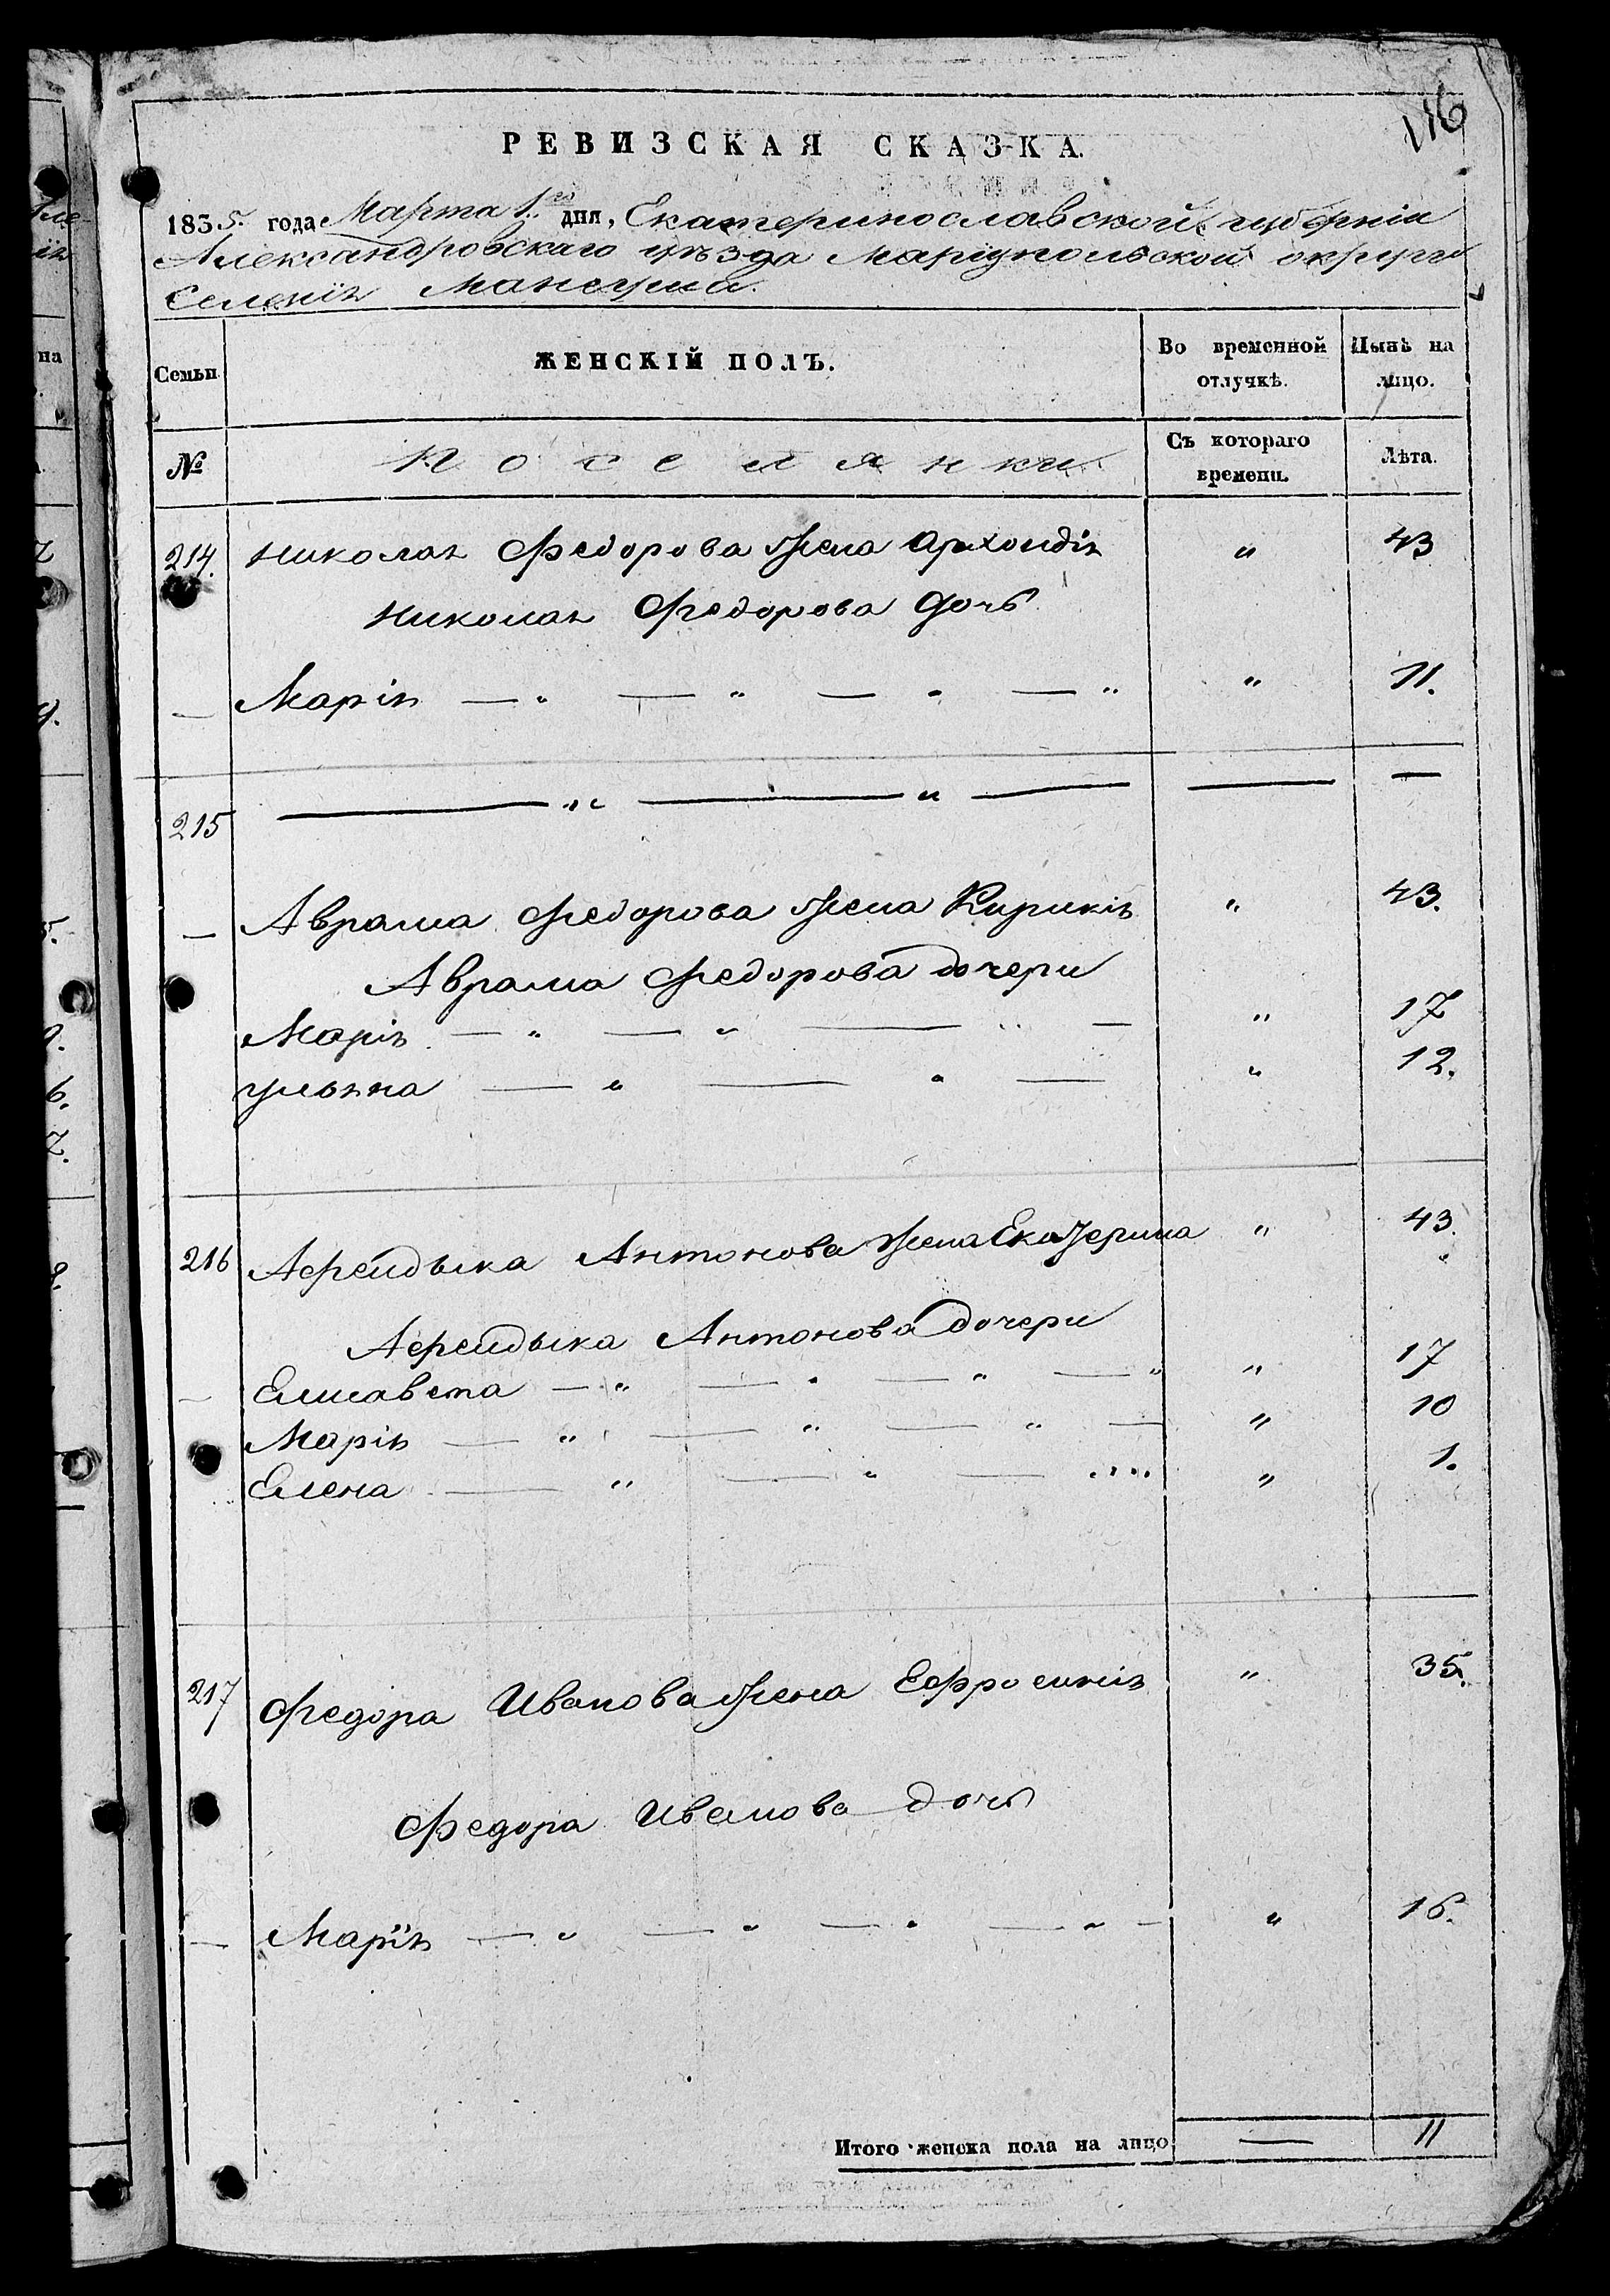 116
РЕВИЗСКАЯ СКАЗКА.
1835. года Марта 1го дня, Екатеринославской губерніи
Александровскаго уѣзда Маріупольской округи
Селенія Мангуша.
Семьи
ЖЕНСКІЙ ПОЛЪ.
Во временной отлучкѣ.
Нынѣ на лицо.
№
Поселянки
Съ котораго времени.
Лѣта.
214. Николая Федорова жена Архондія " 43
Николая Федорова дочь
— Марія — " — " — " — " " 11.
215 — " — " — — —
— Аврама Федорова жена Кирикія " 43.
Аврама Федорова дочери
Марія — " — " — " — " 17
Ульяна — " — " — " 12.
216 Афендыка Антонова жена Екатерина " 43.
Афендыка Антонова дочери
— Елисавета — " — " — " — " " 17
Марія — " — " — " — " 10
Елена — " — " — " " 1.
217 Федора Иванова жена Ефросинія " 35.
Федора Иванова дочь
— Марія — " — " — " — " — " 16.
Итого женска пола на лицо — 11